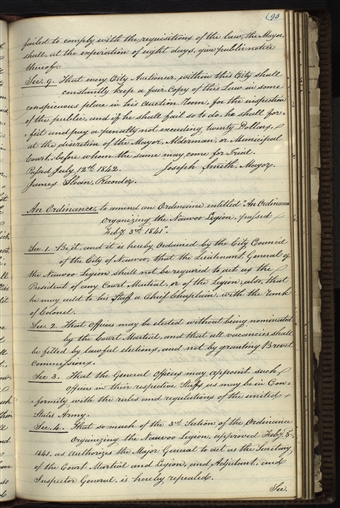 93
failed to comply with the requisitions of the law, the Mayor
shall, at the expiration of eight days, give public notice
thereof.
Sec. 9. That every City Auctioneer, within this City shall
constantly keep a fair Copy of this Law in some
conspicuous place in his Auction Room, for the inspection
of the public, and if he shall fail so to do, he shall for-
feit and pay a penalty not exceeding twenty Dollars,
at the discretion of the Mayor, Alderman, or Municipal
Court, before whom the same may come for Trial.
Passed July 12th 1842. Joseph Smith, Mayor.
James Sloan, Recorder.
An Ordinance, to amend an Ordinance entitled "An Ordinance
Organizing the Nauvoo Legion, passed
Feby 3rd 1841".
Sec. 1. Be it, and it is hereby Ordained by the City Council
of the City of Nauvoo, that the Lieutenant General of
the Nauvoo Legion shall not be required to act as the
President of any Court Martial, or of the Legion, also, that
he may add to his Staff a Chief Chaplain, with the rank
of Colonel.
Sec. 2. That Officers may be elected without being nominated
by the Court Martial, and that all vacancies shall
be filled by lawful elections, and not by granting Brevet
Commissions.
Sec. 3. That the General Officers may appoint such
officers in their respective Staffs, as may be in Con-
formity with the rules and regulations of the united
States Army.
Sec. 4. That so much of the 3rd Section of the Ordinance
Organizing the Nauvoo Legion, approved Feby
1841. as Authorizes the Major General to act as the Secretary
of the Court Martial and Legion, and Adjutant, and
Inspector General, is hereby repealed.
Sec.